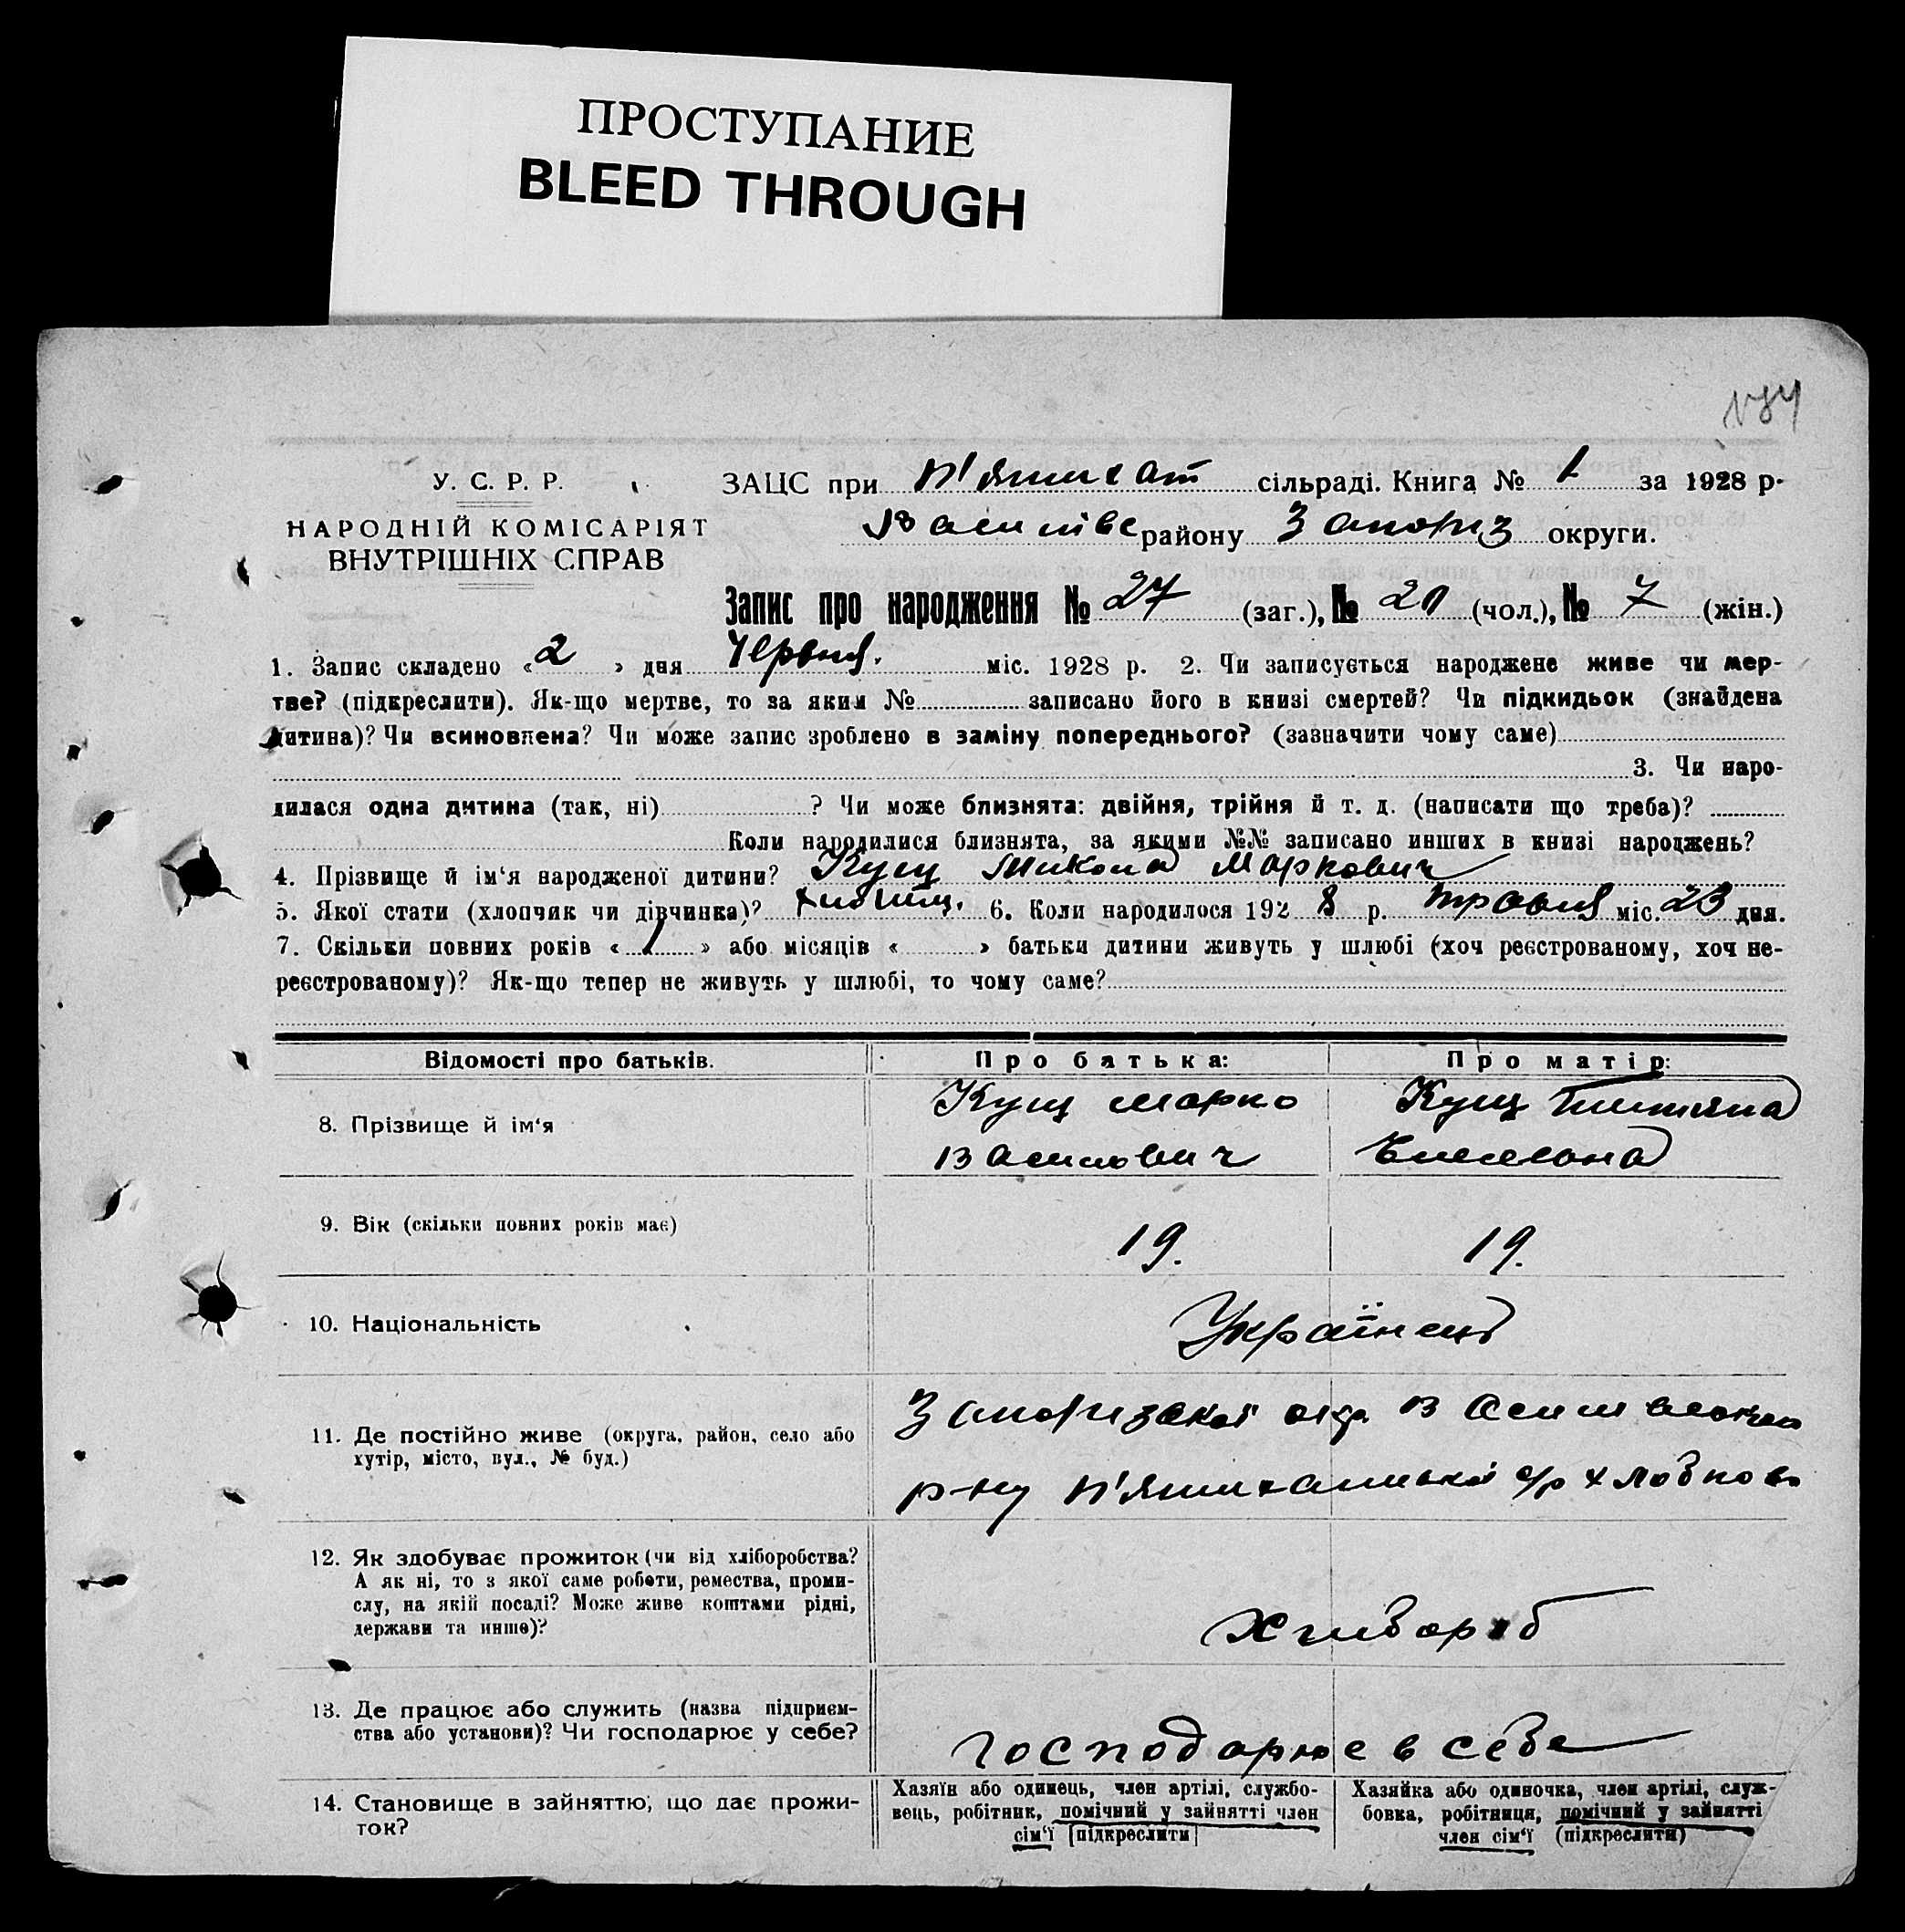 ПРОСТУПАНИЕ
BLEED THROUGH
У. С. Р. Р.
НАРОДНІЙ КОМІСАРІЯТ
ВНУТРІШНІХ СПРАВ
ЗАЦС при П'ятихат сільраді. Книга № 1 за 1928 р.
Василівс району Запоріз округи.
Запис про народження № 27 (заг.), № 20 (чол.), № 7 (жін.)
1. Запис складено «2» дня Червня. міс. 1928 р. 2. Чи записується народжене живе чи мер-
тве? (підкреслити). Як-що мертве, то за яким № записано його в книзі смертей? Чи підкидьок (знайдена
дитина)? Чи всиновлена? Чи може запис зроблено в заміну попереднього? (зазначити чому саме)
3. Чи наро-
дилася одна дитина (так, ні) ? Чи може близнята: двійня, трійня й т. д. (написати що треба)?
Коли народилися близнята, за якими №№ записано инших в книзі народжень?
4. Прізвище й ім'я народженої дитини? Кущ Микола Маркович
5. Якої стати (хлопчик чи дівчинка)? 6. Коли народилося 1928 р. травня міс. 23 дня.
7. Скільки повних років «1» або місяців « » батьки дитини живуть у шлюбі (хоч реєстрованому, хоч не-
реєстрованому)? Як-що тепер не живуть у шлюбі, то чому саме?
Відомості про батьків. Про батька: Про матір:
8. Прізвище й ім'я
Кущ Марко
Василович
Кущ Титяна
9. Вік (скільки повних років має) 19. 19.
10. Національність Українці
11. Де постійно живе (округа, район, село або
хутір, місто, вул., № буд.)
Запоризскої окр Василівського
р-ну П'ятихатської с/р
12. Як здобуває прожиток (чи від хліборобства?
А як ні, то з якої саме роботи, ремества, проми-
слу, на якій посаді? Може живе коштами рідні,
держави та инше)?
Хлібороб
13. Де працює або служить (назва підприєм-
ства або установи)? Чи господарює у себе?
господарює в себе
14. Становище в зайняттю, що дає прожи-
ток?
Хазяїн або одинець, член артілі, службо-
вець, робітник, помічний у зайнятті член
сім'ї (підкреслити)
Хазяйка або одиночка, член артілі, служ-
бовка, робітниця, помічний у зайнятті
член сім'ї (підкреслити)